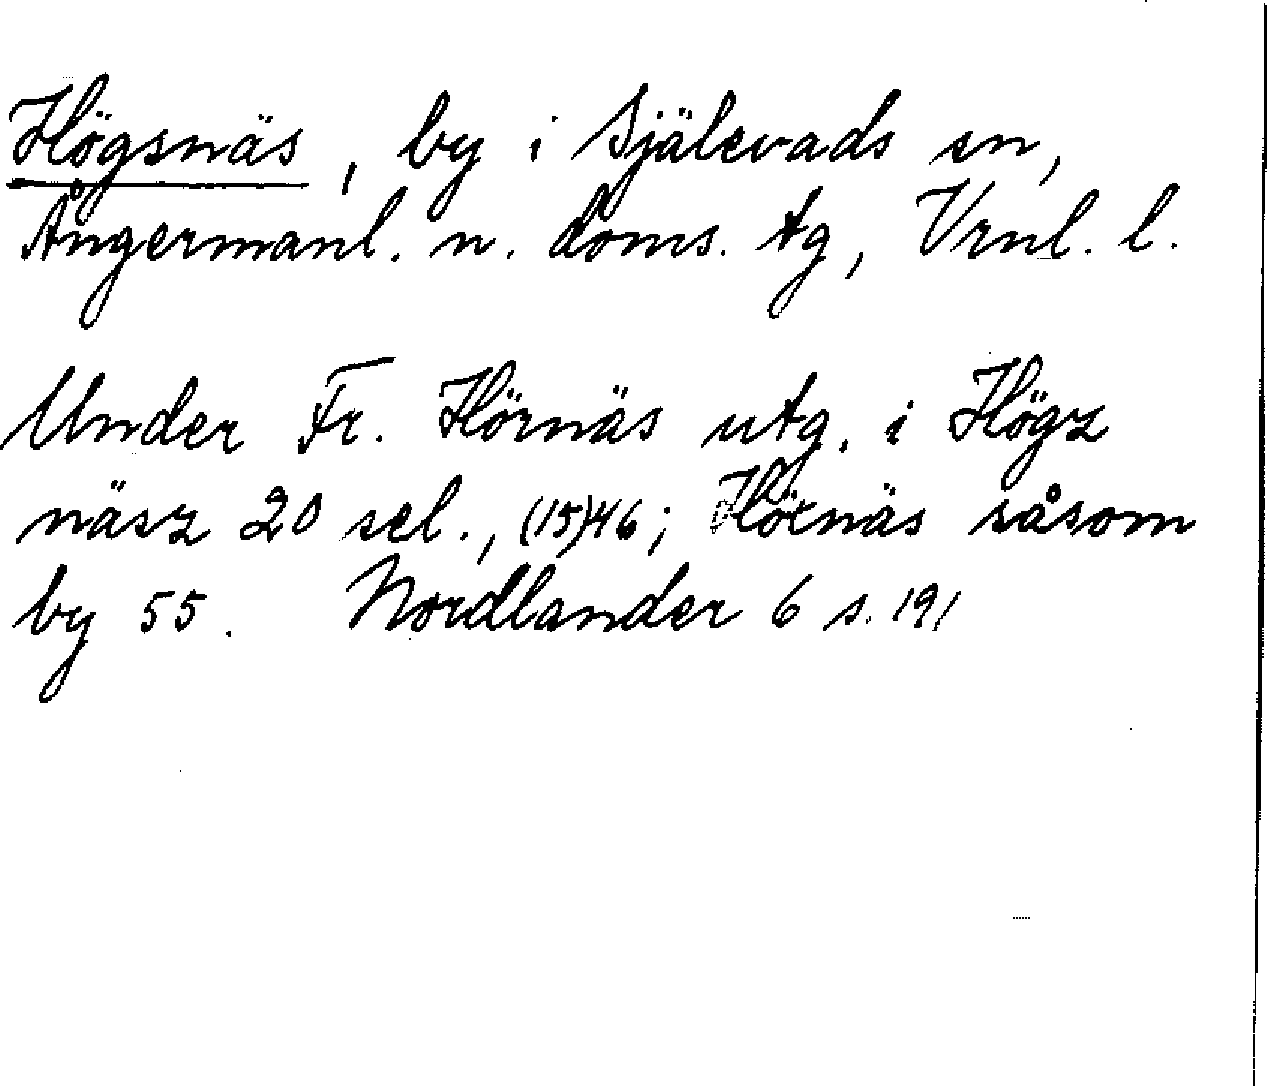 Högsnäs, by i Själevads sn,
Ångermanl. n. doms. tg, Vrnl. l.
Under Fr. Hörnäs utg. i Högz
näsz 20 sel., (15)46; Hörnäs såsom
by 55. Nordlander 6 s. 191